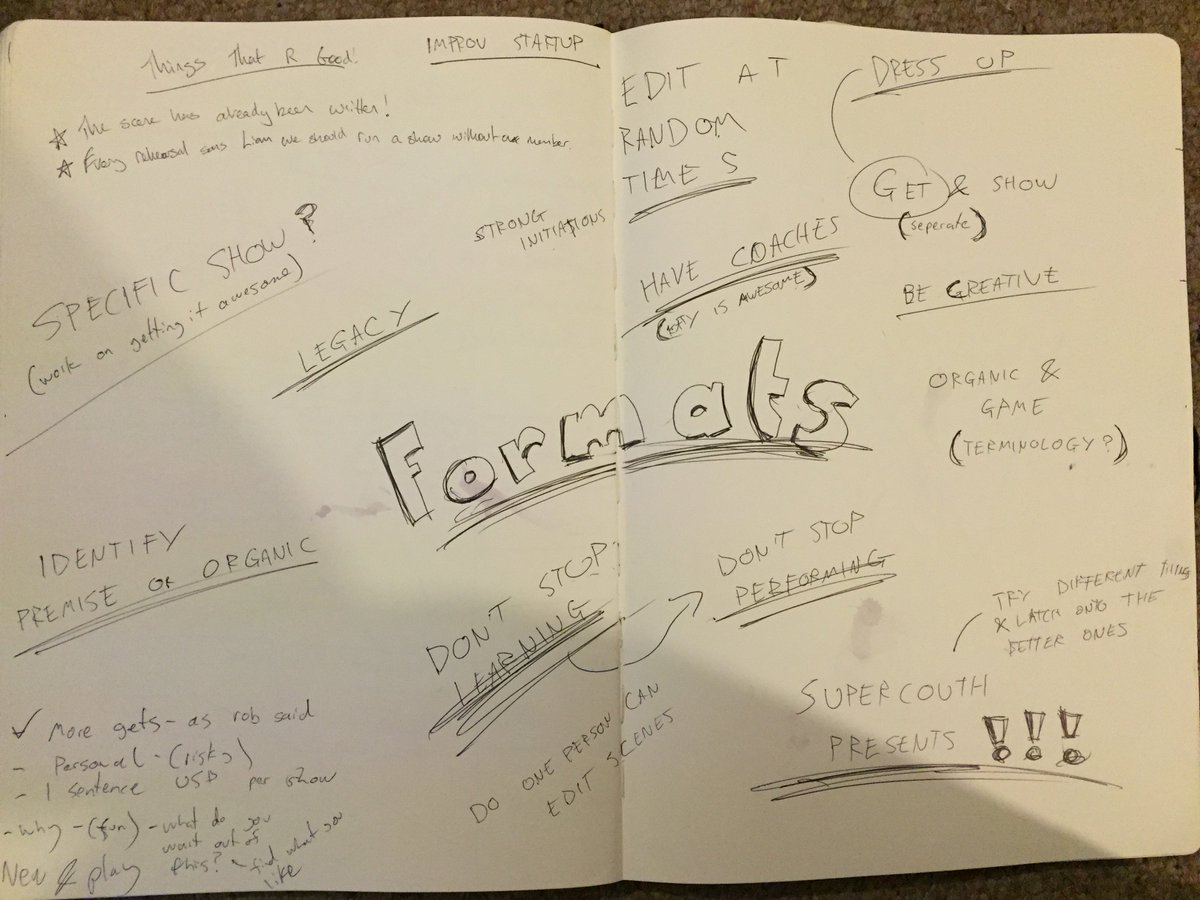 Things That R Good!
IMPROV STARTUP
★ The scene has already been written!
★ Every rehearsal sans Liam we should run a show without one member.
SPECIFIC SHOW?
(work on getting it awesome)
STRONG
INITIATIONS
LEGACY
Formats
IDENTIFY
PREMISE OR ORGANIC
DON'T STOP
LEARNING
✓ More gets - as rob said
- Personal - (risky)
- 1 sentence USP per show
- why - (fun) - what do you
want out of
this? - find what you
like
New & play
DO ONE PERSON CAN
EDIT SCENES
EDIT AT
RANDOM
TIMES
DRESS UP
GET & SHOW
(seperate)
HAVE COACHES
IS AWESOME)
BE CREATIVE
ORGANIC &
GAME
(TERMINOLOGY?)
DON'T STOP
PERFORMING
TRY DIFFERENT THINGS
& LATCH ONTO THE
BETTER ONES
SUPERCOUTH
PRESENTS !!!